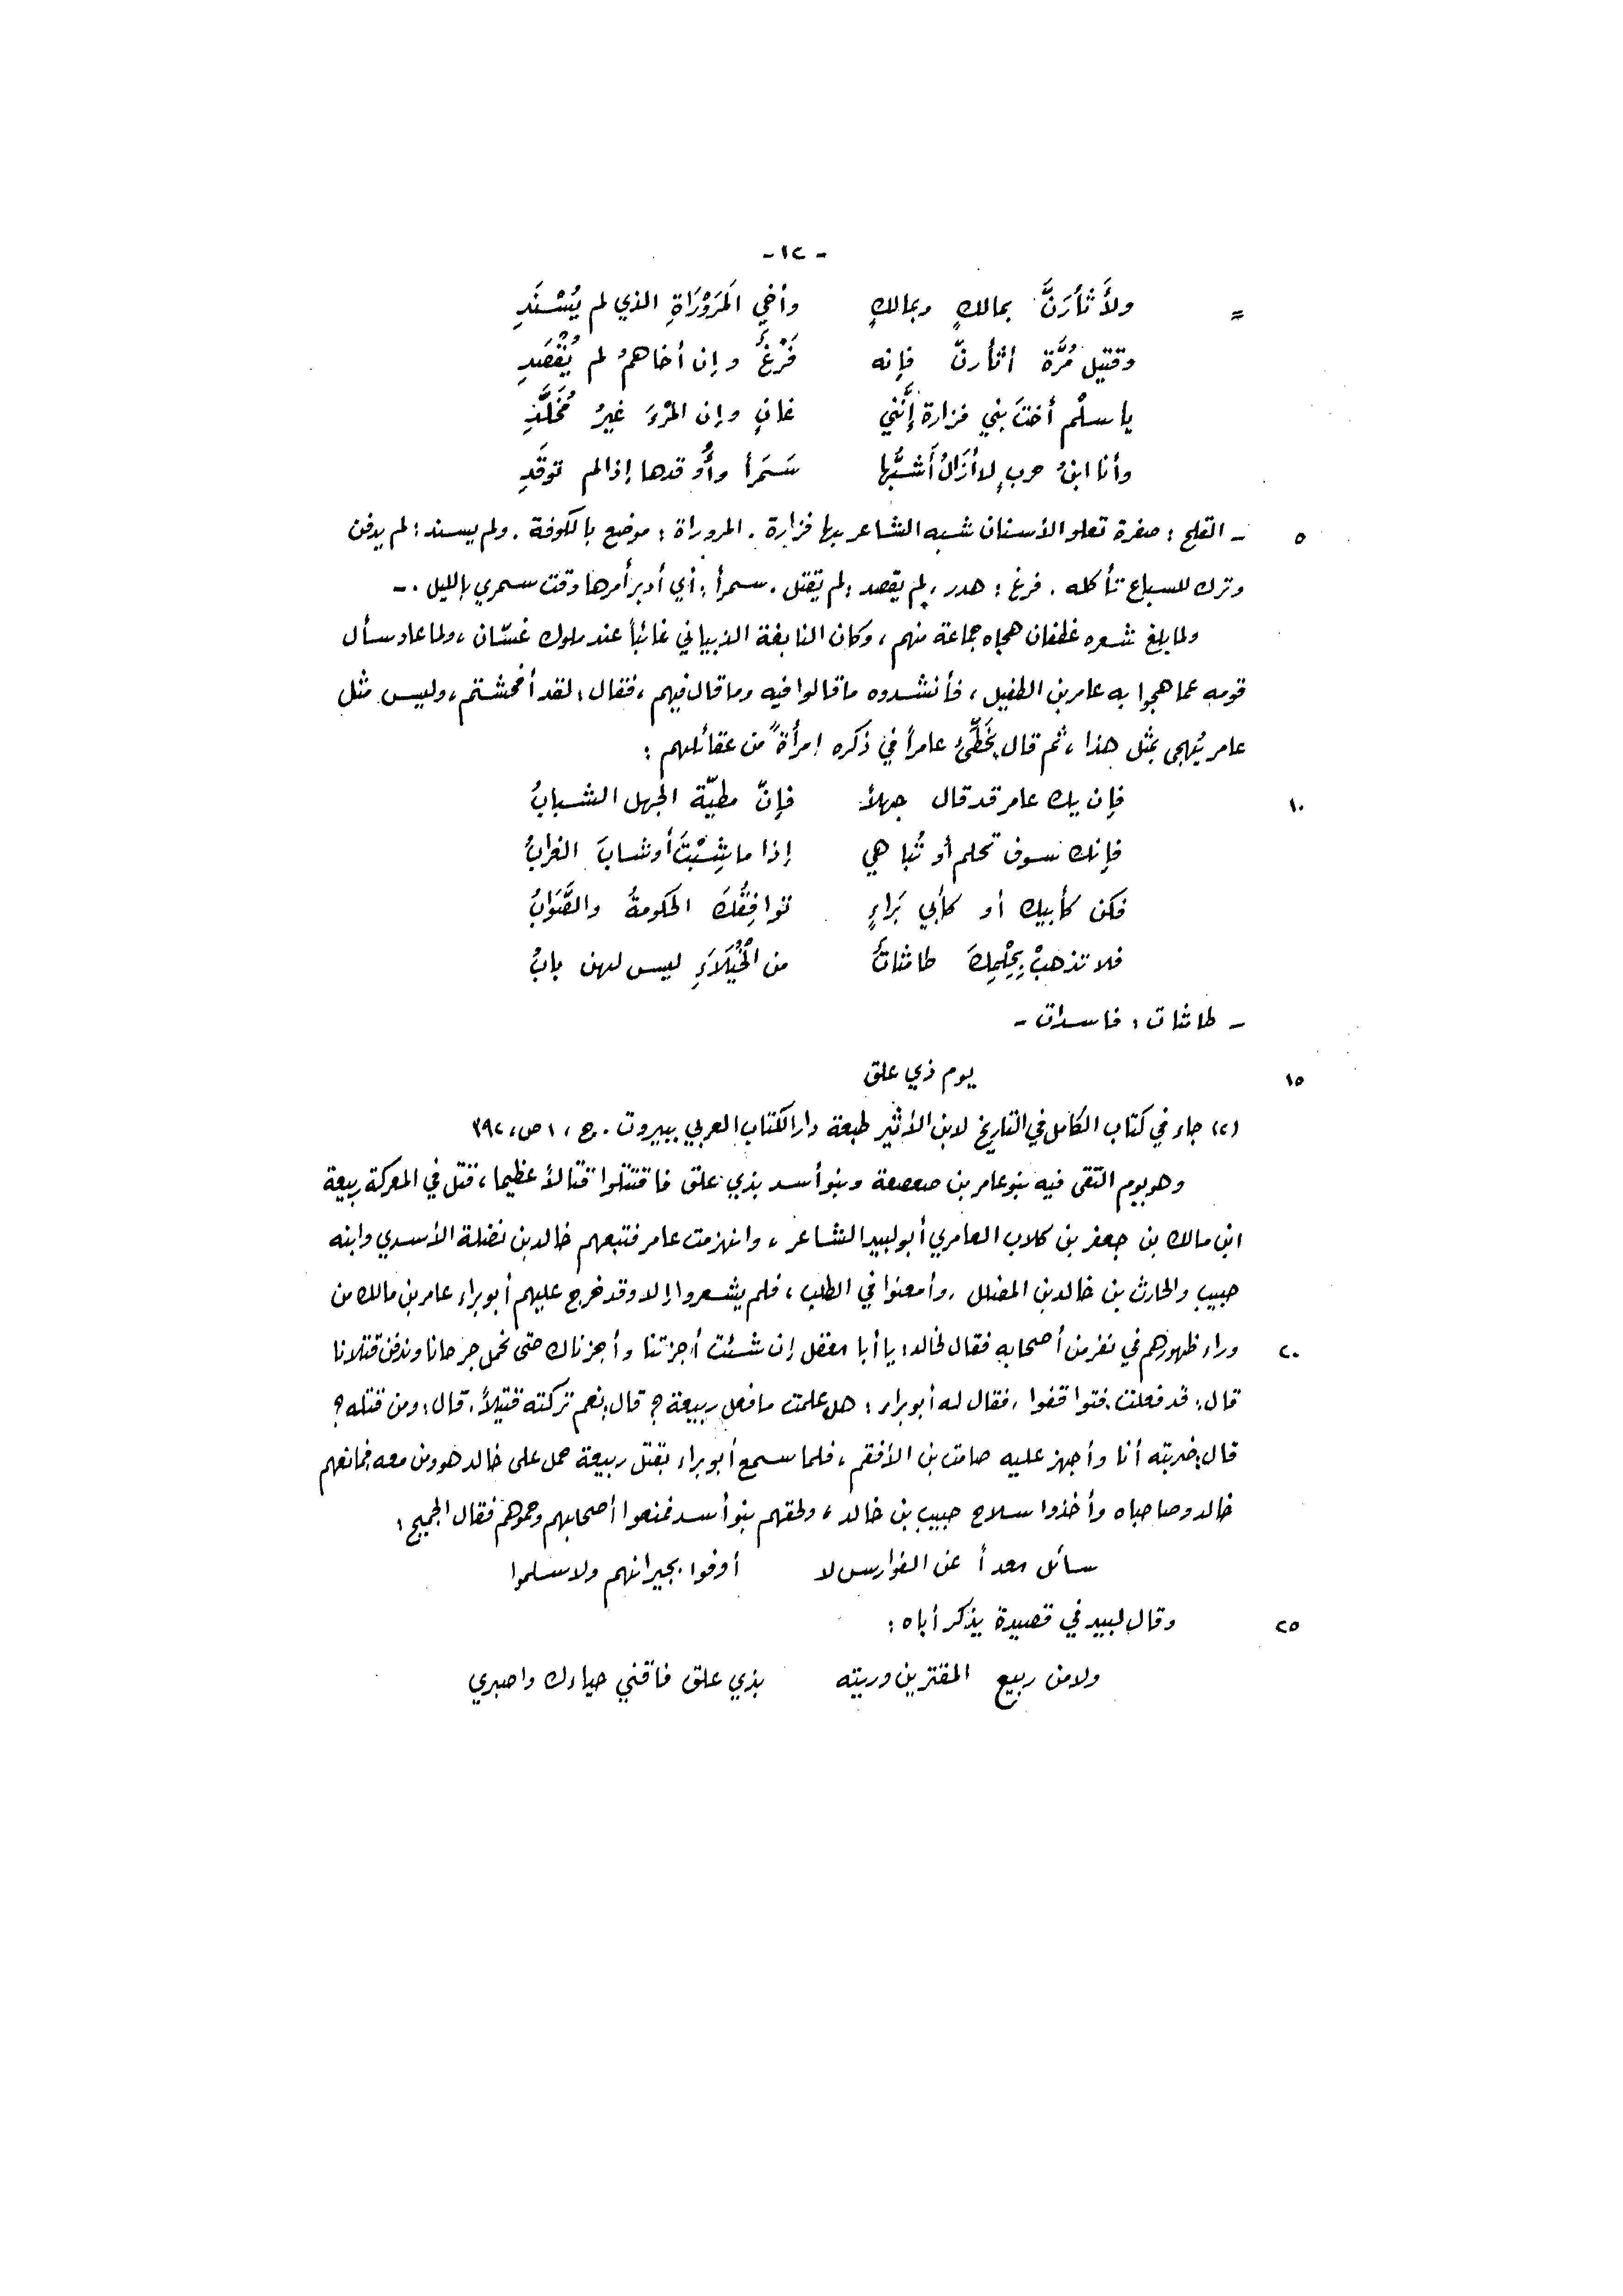 - ١٢ -
= ولأَثأرَنَّ بمالكٍ وبمالكٍ وأخي المَرَوْرَاةِ الذي لم يُسْنَدِ
وقتيل مُرَّة أثأرنّ فإنه فَرْغٌ وإن أخاهمُ لم يُقْصَدِ
يا سلْم أختَ بني فزارة إنَّني غانٍ وإن المرْءَ غيرُ مُخَلَّدِ
وأنا ابنُ حربٍ لا أزَالُ أَشبُّها سَمَراً وأُوقدها إذا لم توقَدِ
٥ ـ القلح : صفرة تعلو الأسنان شبه الشاعر بها فزارة . المروراة : موضع بالكوفة . ولم يسند : لم يدفن
وترك للسباع تأكله . فرغ : هدر ، لم يقصد : لم يقتل . سمراً : أي أدبر أمرها وقت سمري بالليل . ـ
ولما بلغ شعره غطفان هجاه جماعة منهم ، وكان النابغة الذبياني غائباً عند ملوك غسّان ، ولما عاد سأل
قومه عما هجوا به عامر بن الطفيل ، فأنشدوه ما قالوا فيه وما قال فيهم ، فقال : لقد أفحشتم ، وليس مثل
عامر يُهجى بمثل هذا ، ثم قال يُخَطِّئُ عامراً في ذكره إمرأةً من عقائلهم :
١٠ فإن يك عامر قد قال جهلاً فإنّ مطيّة الجهل الشبابُ
فإنك سوف تحلم أو تُباهي إذا ما شِبْتَ أو شابَ الغرابُ
فكن كأبيك أو كأبي بَراءٍ توافِقُكَ الحكومةُ والصَّوَابُ
فلا تذهبْ بِحِلْمِكَ طامثاتٌ من الخُيَلَاءِ ليس لهن بابُ
ـ طامثات : فاسدات ـ
١٥ يوم ذي علق
(٢) جاء في كتاب الكامل في التاريخ لابن الأثير طبعة دار الكتاب العربي ببيروت . ج ، ١ ص ، ٣٩٢
وهو يوم التقى فيه بنو عامر بن صعصعة وبنو أسد بذي علق فاقتتلوا قتالاً عظيما ، قتل في المعركة ربيعة
ابن مالك بن جعفر بن كلاب العامري أبو لبيد الشاعر ، وانهزمت عامر فتبعهم خالد بن نضلة الأسدي وابنه
حبيب والحارث بن خالد بن المضلل ، وأمعنوا في الطلب ، فلم يشعروا إلا وقد خرج عليهم أبو براء عامر بن مالك من
٢٠ وراء ظهورهم في نفر من أصحابه فقال لخالد : يا أبا معقل إن شئت أجزتنا وأجزناك حتى نحمل جرحانا وندفن قتلانا
قال : قد فعلت . فتواقفوا ، فقال له أبو براء : هل علمت ما فعل ربيعة ؟ قال : نعم تركته قتيلاً . قال : ومن قتله ؟
قال : ضربته أنا وأجهز عليه صامت بن الأفقم ، فلما سمع أبو براء بقتل ربيعة حمل على خالد هو ومن معه ، فمانعهم
خالد وصاحباه وأخذوا سلاح حبيب بن خالد ، ولحقهم بنو أسد فمنعوا أصحابهم وحموهم فقال الجميح :
سائل معداً عن الفوارس لا أوفوا بجيرانهم ولا سلموا
٢٥ وقال لبيد في قصيدة يذكر أباه :
ولا من ربيع المقترين وريته بذي علق فاقني حياءك واصبري